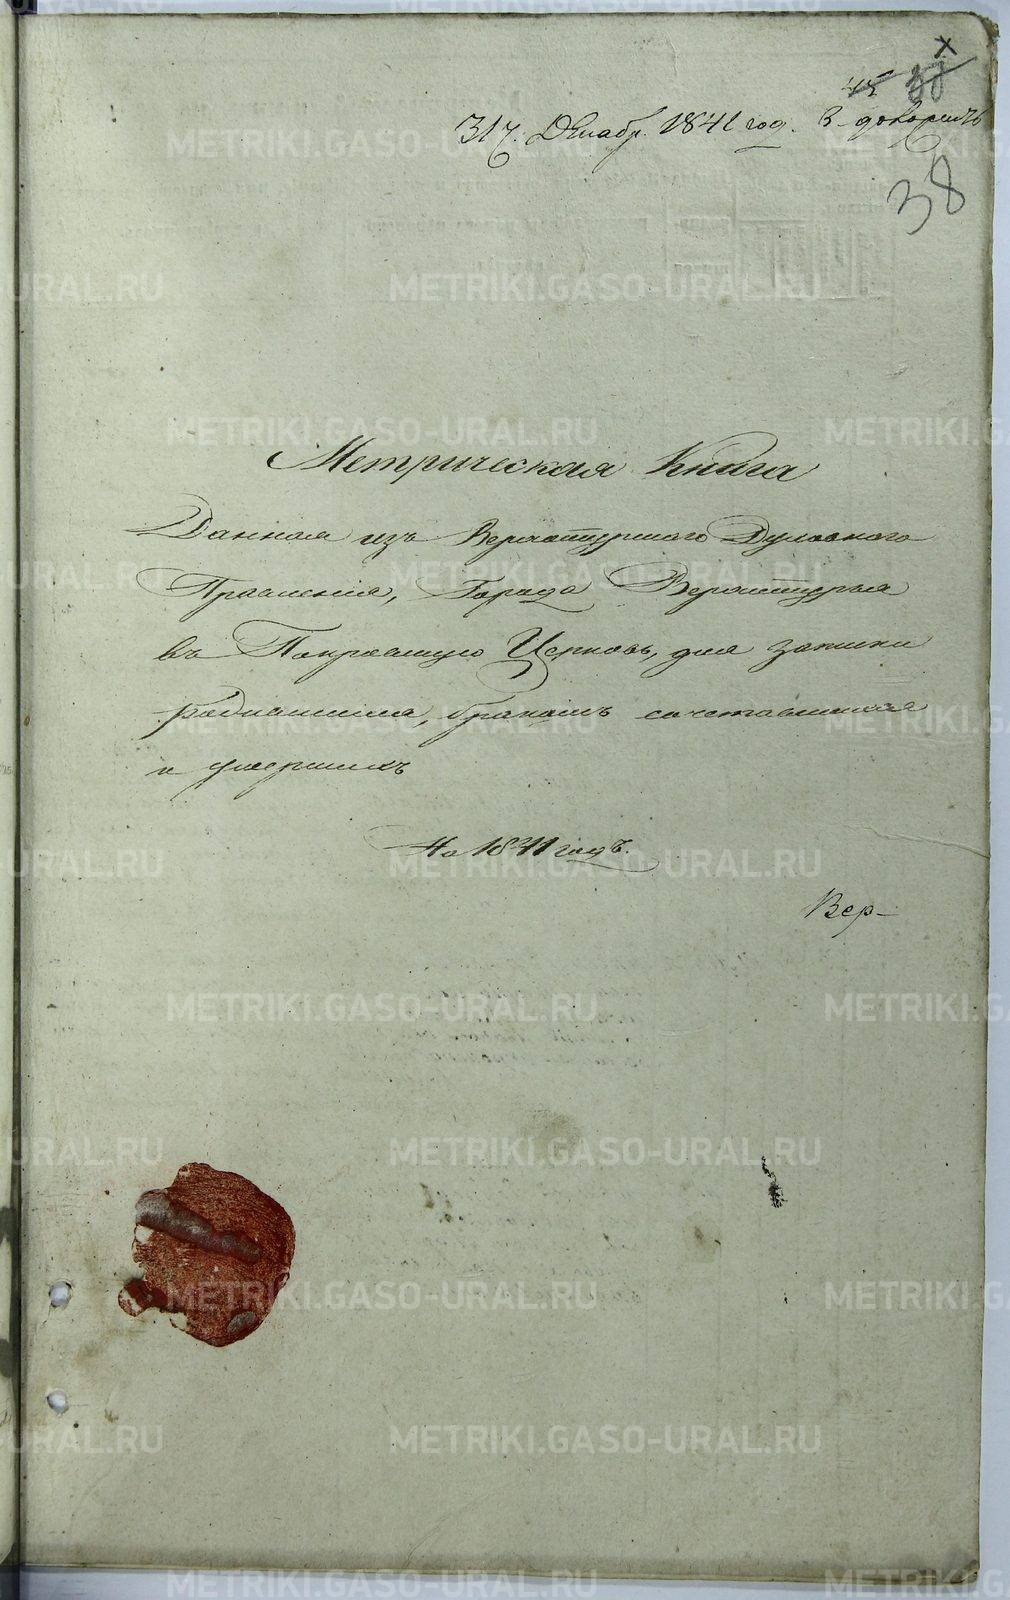 х
45
31 ч. Декабр. 1841 год.
38
Метрическая Книга
Данная изъ Верхотурского Духовного
Правления, Города Верхотурья
въ Покровскую Церковь, для записки
родившихся, бракомъ сочетавшихся
и умершихъ
На 1841 годъ.
Вер-
METRIKI.GASO-URAL.RU